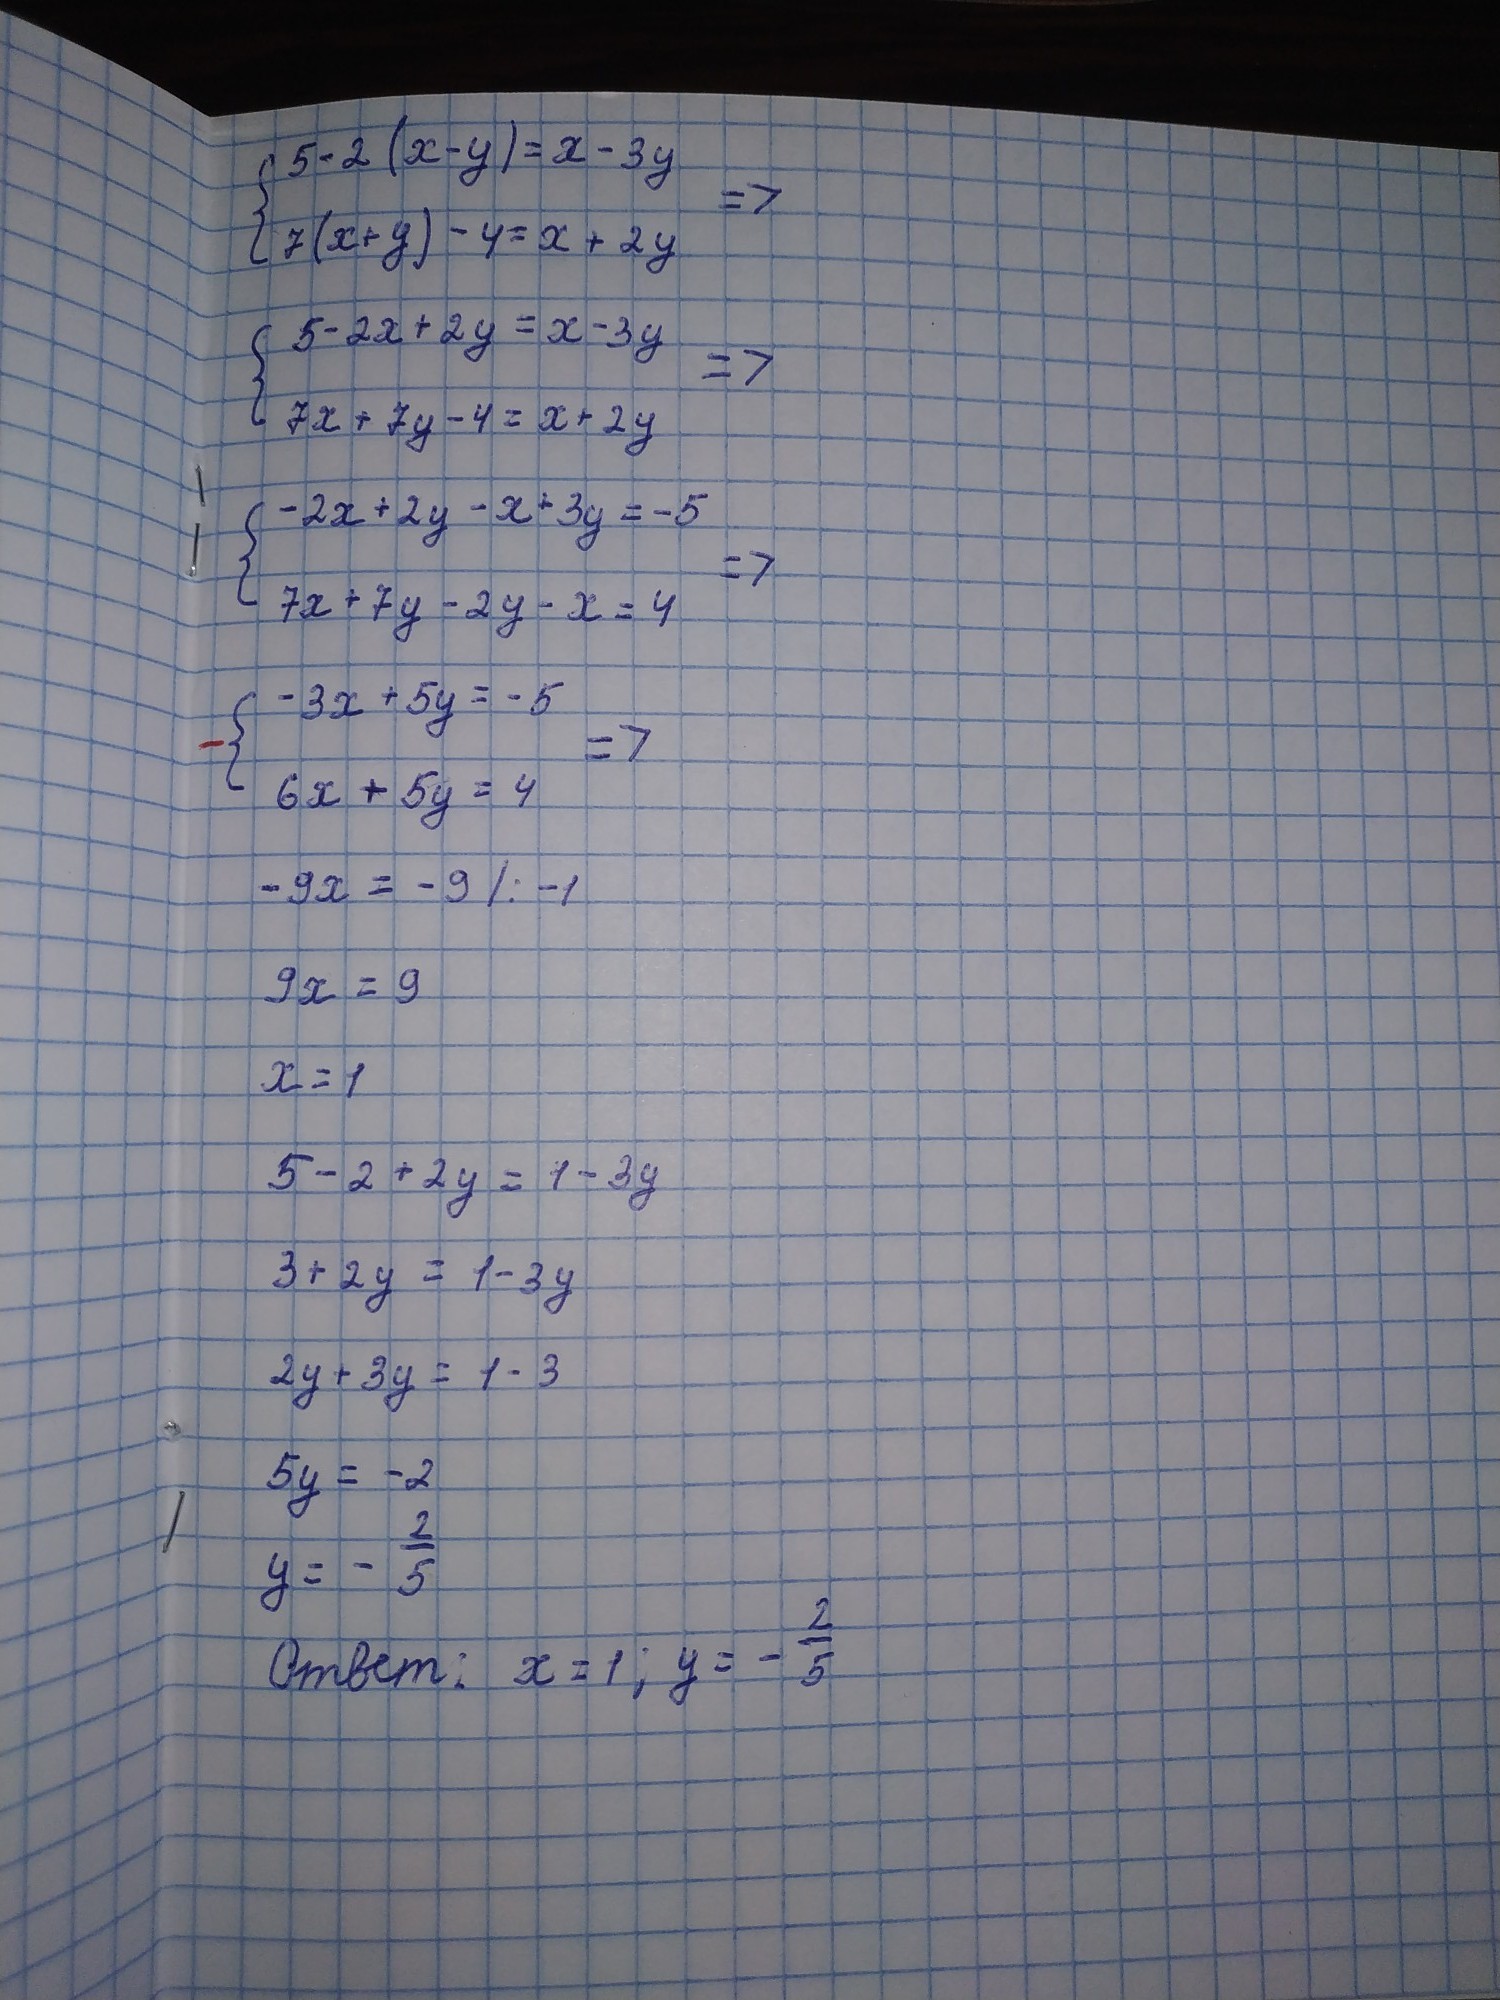 5-2(x-y)=x-3y
=>
7(x+y)-4=x+2y
5-2x+2y=x-3y
=>
7x+7y-4=x+2y
-2x+2y-x+3y=-5
=>
7x+7y-2y-x=4
-3x+5y=-5
- =>
6x+5y=4
-9x=-9 /: -1
9x=9
x=1
5-2+2y=1-3y
3+2y=1-3y
2y+3y=1-3
5y=-2
y=-2/5
Ответ: x=1; y=-2/5